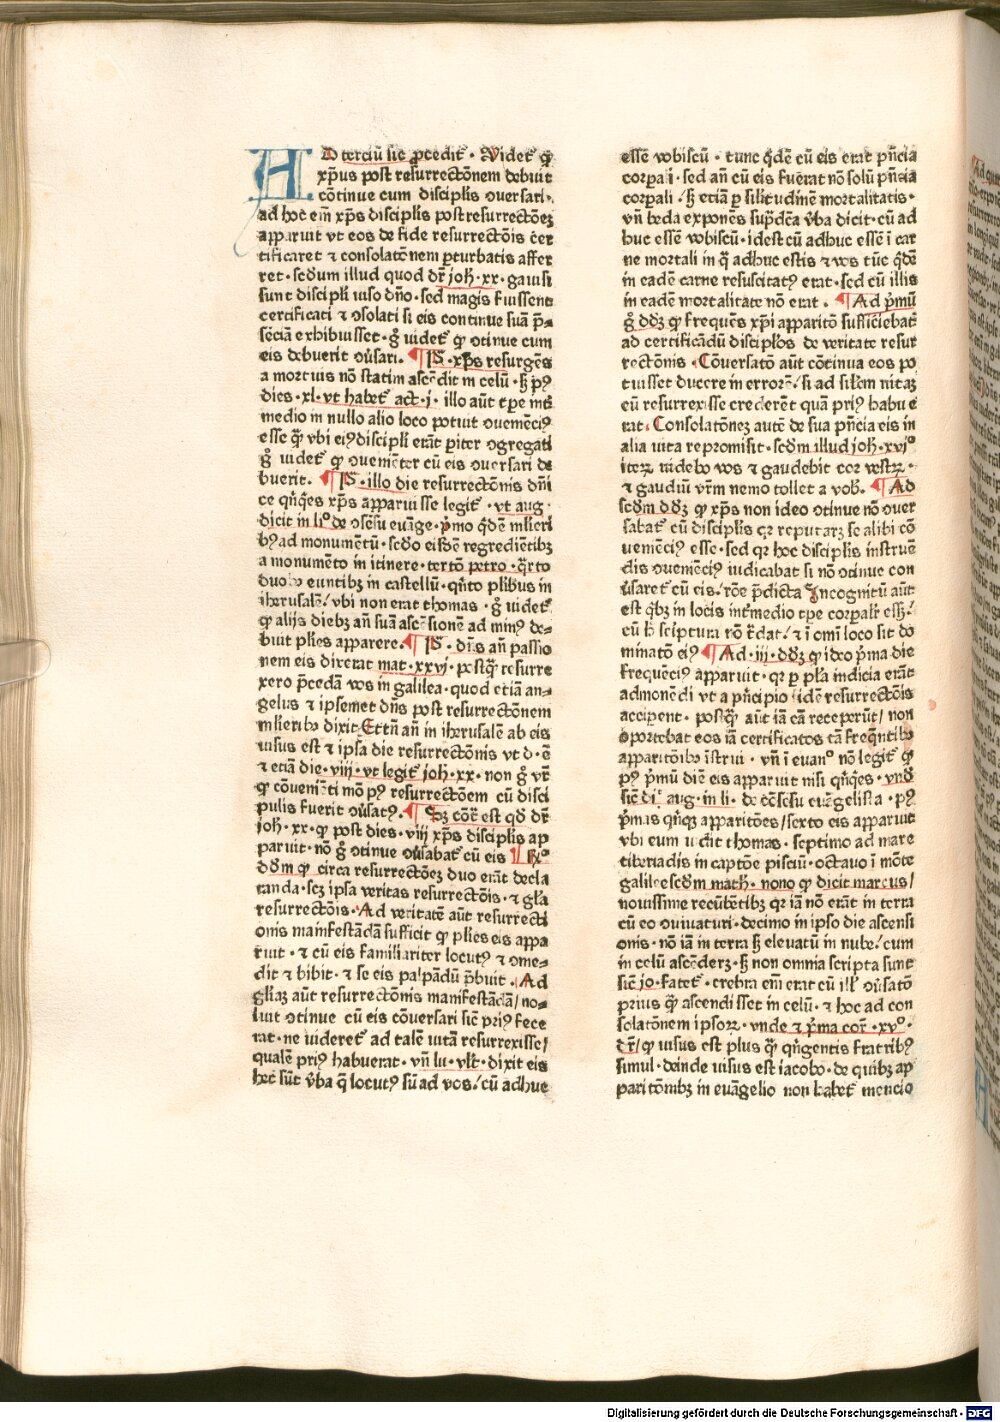 AD terciū sic ꝓcedit᷑ · Videt᷑ ꝙ
xp̄us post resurrectōnem debuit
cōtinue cum disciplis ↄuersari ·
ad hoc em̄ xp̄s disciplis post resurrectōeꝫ
apparuit vt eos de fide resurrectōis cer
tificaret ⁊ consolatōnem ꝑturbatis affer
ret · scdum illud quod dr̄ joh̄ · xx · gauisi
sunt discipli uiso dn̄o · sed magis fuissent
certificati ⁊ ↄsolati si eis continue suā p̄⸗
sēciā exhibuisset · g̊ uidet᷑ ꝙ ↄtinue cum
eis debuerit ↄuersari. ¶ Pͫ · xp̄s resurgēs
a mortuis nō statim ascēdit in celū · sꝫ pꝰ
dies · xl · vt habet᷑ act · j · illo aūt tp̄e int᷑
medio in nullo alio loco potuit ↄuemēciꝰ
esse qͣ̄ vbi eiꝰ discipli erāt ꝑiter ↄgregati
g̊ uidet᷑ ꝙ ↄuenient᷑er cū eis ↄuersari de
buerit. ¶ Pͫ · illo die resurrectōnis dn̄i
ce qn̄q̄es xp̄s apparuisse legit᷑ · vt aug ·
dicit in li° de ↄsēsu euāge · p̓mo q̄dē mlieri
bꝰ ad monumētū · scdo eisdē regrediētibꝫ
a monumēto in itinere · tertō petro · q̄rto
duobꝰ euntibꝫ in castellū · qn̄to plibus in
iherusalē / vbi non erat thomas · g̊ uidet᷑
ꝙ alijs diebꝫ an̄ suā ascēsionē ad minꝰ de⸗
buit plies apparere. ¶ Pͫ · dn̄s an̄ passio
nem eis dixerat mat · xxvj · postqͣ̄ resurre
xero p̄cedā vos in galilea · quod etiā an⸗
gelus ⁊ ipsemet dn̄s post resurrectōnem
mlieribꝰ dixit Et tn̄ an̄ in iherusalē ab eis
uisus est ⁊ ipsa die resurrectōnis vt d · ē
⁊ etiā die · viij · vt legit᷑ joh̄ · xx · non g̊ vr̄
ꝙ cōuenieti mō pꝰ resurrectōem cū disci
pulis fuerit ↄuersatꝰ. ¶ Sꝫ cōt᷑ est qd dr̄
joh̄ · xx · ꝙ post dies · viij xp̄s disciplis ap
paruit · nō g̊ ↄtinue ↄuersabat᷑ cū eis ¶ R°
dōm ꝙ circa resurrectōeꝫ duo erāt decla
randa · scꝫ ipsa veritas resurrectōis · ⁊ glīa
resurrectōis · Ad veritatē aūt resurrecti
onis manifestādā sufficit ꝙ plies eis appa
ruit · ⁊ cū eis familiariter locutꝰ ⁊ ↄme⸗
dit ⁊ bibit · ⁊ se eis palpādū p̄buit · Ad
gliaꝫ aūt resurrectōnis manifestādā / no⸗
luit ↄtinue cū eis cōuersari sic̄ priꝰ fece
rat · ne uideret᷑ ad talē vitā resurrexisse /
qualē priꝰ habuerat · vn̄ lu · vlt̄ · dixit eis
hec sūt v̓ba q̄ locutꝰ sū ad vos / cū adhuc
essē vobiscū · tunc q̄dē cū eis erat pn̄cia
corꝑali · sed an̄ cū eis fuerat nō solū pn̄cia
corꝑali / sꝫ etiā ꝑ silitudinē mortalitatis ·
vn̄ beda exponēs sup̄dc̄a v̓ba dicit · cū ad
huc essē vobiscū · id est cū adhuc essē i car
ne mortali in q̄ adhuc estis ⁊ vos tūc q̄dē
in eadē carne resuscitatꝰ erat · sed cū illis
in eadē mortalitate nō erat . ¶ Ad p̄mū
g̊ dōꝫ ꝙ frequēs xp̄i apparitō sufficiebat᷑
ad certificādū disciplos de veritate resur
rectōnis · Cōuersatō aūt cōtinua eos po
tuisset ducere in errorē / si ad silem vitaꝫ
eū resurrexisse crederēt quā priꝰ habue
rat · Consolatōneꝫ autē de sua pn̄cia eis in
alia vita repromisit · scdm illud joh̄ · xvj°
iteꝝ uidebo vos ⁊ gaudebit cor vestꝝ ·
⁊ gaudiū vr̄m nemo tollet a vob᷑. ¶ Ad
scdm dōꝫ ꝙ xp̄s non ideo ↄtinue nō ↄuer
sabat᷑ cū disciplis qꝛ reputarꝫ se alibi cō
uemēciꝰ esse · sed qꝛ hoc disciplis instruē
dis ↄuemēciꝰ iudicabat si nō ↄtinue con
ↄuersaret᷑ cū eis / rōe p̄dicta Incognitū aūt
est qͥbꝫ in locis int᷑medio tp̄e corꝑalr̄ ess᷑ /
cū h̄ scriptura nō t̄dat / ⁊ i omī loco sit do
minatō eiꝰ ¶ Ad · iij · dōꝫ ꝙ ideo p̄ma die
frequēciꝰ apparuit · qꝛ ꝑ pl̄a indicia erāt
admonēdi vt a pn̄cipio fidē resurrectōis
acciperent · postqͣ̄ aūt iā eā receperūt / non
oportebat eos iā certificatos tā freq̄ntibꝰ
apparitōibꝰ īstrui · vn̄ i euan° nō legit᷑ ꝙ
pꝰ p̄mū diē eis apparuit nisi qn̄q̄es · vnd̄
sic̄ di° aug · in li · de cōsēsu euāgelista · pꝰ
p̄mas qn̄qꝫ apparitōes / sexto eis apparuit
vbi eum uidit thomas · septimo ad mare
tiberiadis in captōe pisciū · octauo i mōte
galilee scdm math̄ · nono ꝙ dicit marcus /
nouissime recūbētibꝫ qꝛ iā nō erāt in terra
cū eo ↄuiuaturi · decimo in ipso die ascensi
onis · nō iā in terra sꝫ eleuatū in nube / cum
in celū ascēderꝫ · sꝫ non omnia scripta sunt
sic̄ jo · fatet᷑ · crebra em̄ erat cū ill᷑ ↄuersatō
prius qͣ̄ ascendisset in celū · ⁊ hoc ad con
solatōnem ipsoꝝ · vnde ⁊ p̄ma cor̄ · xv° ·
dr̄ / ꝙ uisus est plus qͣ̄ qn̄gentis fratribꝰ
simul · deinde uisus est iacobo · de quibꝫ ap
paritōnibꝫ in euāgelio non habet᷑ mencio
Digitalisierung gefördert durch die Deutsche Forschungsgemeinschaft - DFG